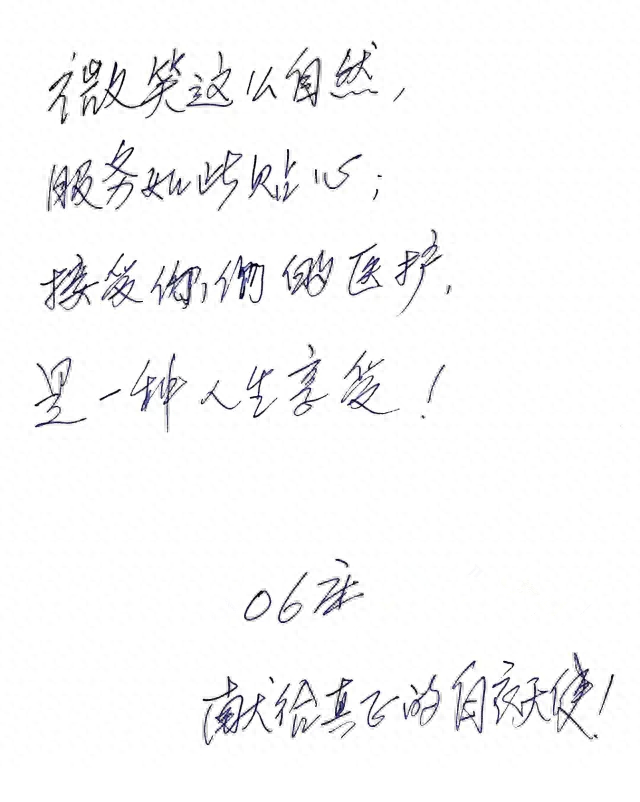 微笑这么自然,
服务如此贴心;
接受你们的医护,
是一种人生享受!
06床
献给真正的白衣天使!